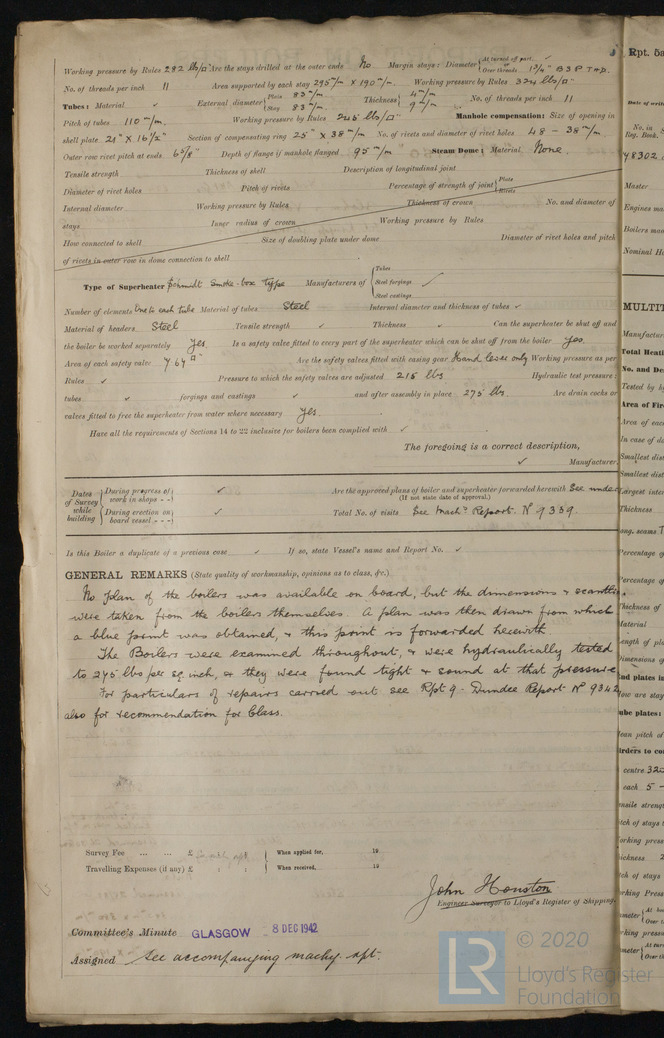 Working pressure by Rules 232 lbs/□" Are the stays drilled at the outer ends No. Margin stays: Diameter { At turned off part, ✓ or Over threads 1 3/4" B.S.P. THD.
No. of threads per inch 11 Area supported by each stay 295 m/m × 190 m/m. Working pressure by Rules 324 lbs/□"
Tubes: Material ✓ External diameter { Plain 83 m/m Stay 83 m/m Thickness { 4 m/m 9 m/m No. of threads per inch 11
Pitch of tubes 110 m/m. Working pressure by Rules 245 lbs/□" Manhole compensation: Size of opening in
shell plate 21" × 16 1/2" Section of compensating ring 25" × 38 m/m No. of rivets and diameter of rivet holes 48 - 38 m/m
Outer row rivet pitch at ends 6 5/8" Depth of flange if manhole flanged 95 m/m Steam Dome: Material None.
Tensile strength Thickness of shell Description of longitudinal joint
Diameter of rivet holes Pitch of rivets Percentage of strength of joint { Plate Rivets
Internal diameter Working pressure by Rules Thickness of crown No. and diameter of
stays Inner radius of crown Working pressure by Rules
How connected to shell Size of doubling plate under dome Diameter of rivet holes and pitch
of rivets in outer row in dome connection to shell
Type of Superheater Schmidt Smoke-box type Manufacturers of { Tubes Steel forgings Steel castings ✓
Number of elements One to each tube Material of tubes Steel Internal diameter and thickness of tubes ✓
Material of headers Steel Tensile strength ✓ Thickness ✓ Can the superheater be shut off and
the boiler be worked separately Yes. Is a safety valve fitted to every part of the superheater which can be shut off from the boiler Yes.
Area of each safety valve 7.69 □" Are the safety valves fitted with easing gear Hand lever only Working pressure as per
Rules ✓ Pressure to which the safety valves are adjusted 215 lbs. Hydraulic test pressure:
tubes ✓ forgings and castings ✓ and after assembly in place 275 lbs. Are drain cocks or
valves fitted to free the superheater from water where necessary Yes.
Have all the requirements of Sections 14 to 22 inclusive for boilers been complied with ✓
The foregoing is a correct description,
✓ Manufacturer.
Dates of Survey while building { During progress of work in shops - - ✓ Are the approved plans of boiler and superheater forwarded herewith See under
(If not state date of approval.)
{ During erection on board vessel - - - ✓ Total No. of visits See Mach? Report. No 9339.
Is this Boiler a duplicate of a previous case ✓ If so, state Vessel's name and Report No. ✓
GENERAL REMARKS (State quality of workmanship, opinions as to class, &c.)
No plan of the boilers was available on board, but the dimensions & scantlin
were taken from the boilers themselves. A plan was then drawn from which
a blue print was obtained, & this print is forwarded herewith
The Boilers were examined throughout, & were hydraulically tested
to 275 lbs per sq. inch, & they were found tight & sound at that pressure
For particulars of repairs carried out see Rpt 9 - Dundee Report No 9342
also for recommendation for Class.
Survey Fee ... ... £ } When applied for, 19
Travelling Expenses (if any) £ : : } When received, 19
John Houston
Engineer Surveyor to Lloyd's Register of Shipping.
Committee's Minute GLASGOW 8 DEC 1942
Assigned See accompanying machy. rpt.
LR © 2020
Lloyd's Register
Foundation
Rpt. 5a
Date of writ
No. in
Reg. Book.
48302
Master
Engines ma
Boilers mad
Nominal Ho
MULTIT
Manufactur
Total Heati
No. and De
Tested by h
Area of Fire
Area of eac
In case of do
Smallest dist
Smallest dist
Largest inter
Thickness
Percentage o
Percentage of
Thickness of
Material